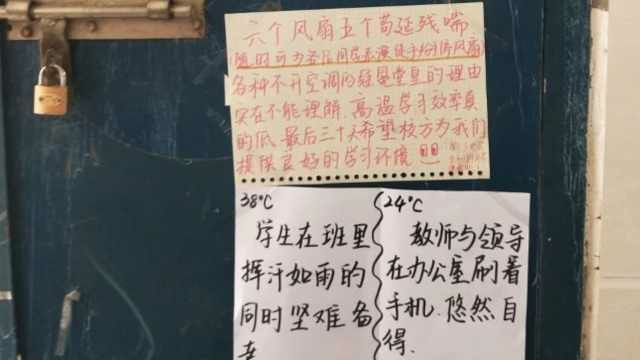 六个风扇五个苟延残喘
(随时可为各位同学表演徒手给停风扇)
各种不开空调的冠冕堂皇的理由
实在不能理解、高温学习效率真
的低 最后三十天希望校方为我们
提供良好的学习环境
38°C
学生在班里
挥汗如雨的
同时坚难备
24°C
教师与领导
在办公室刷着
手机.悠然自
得.